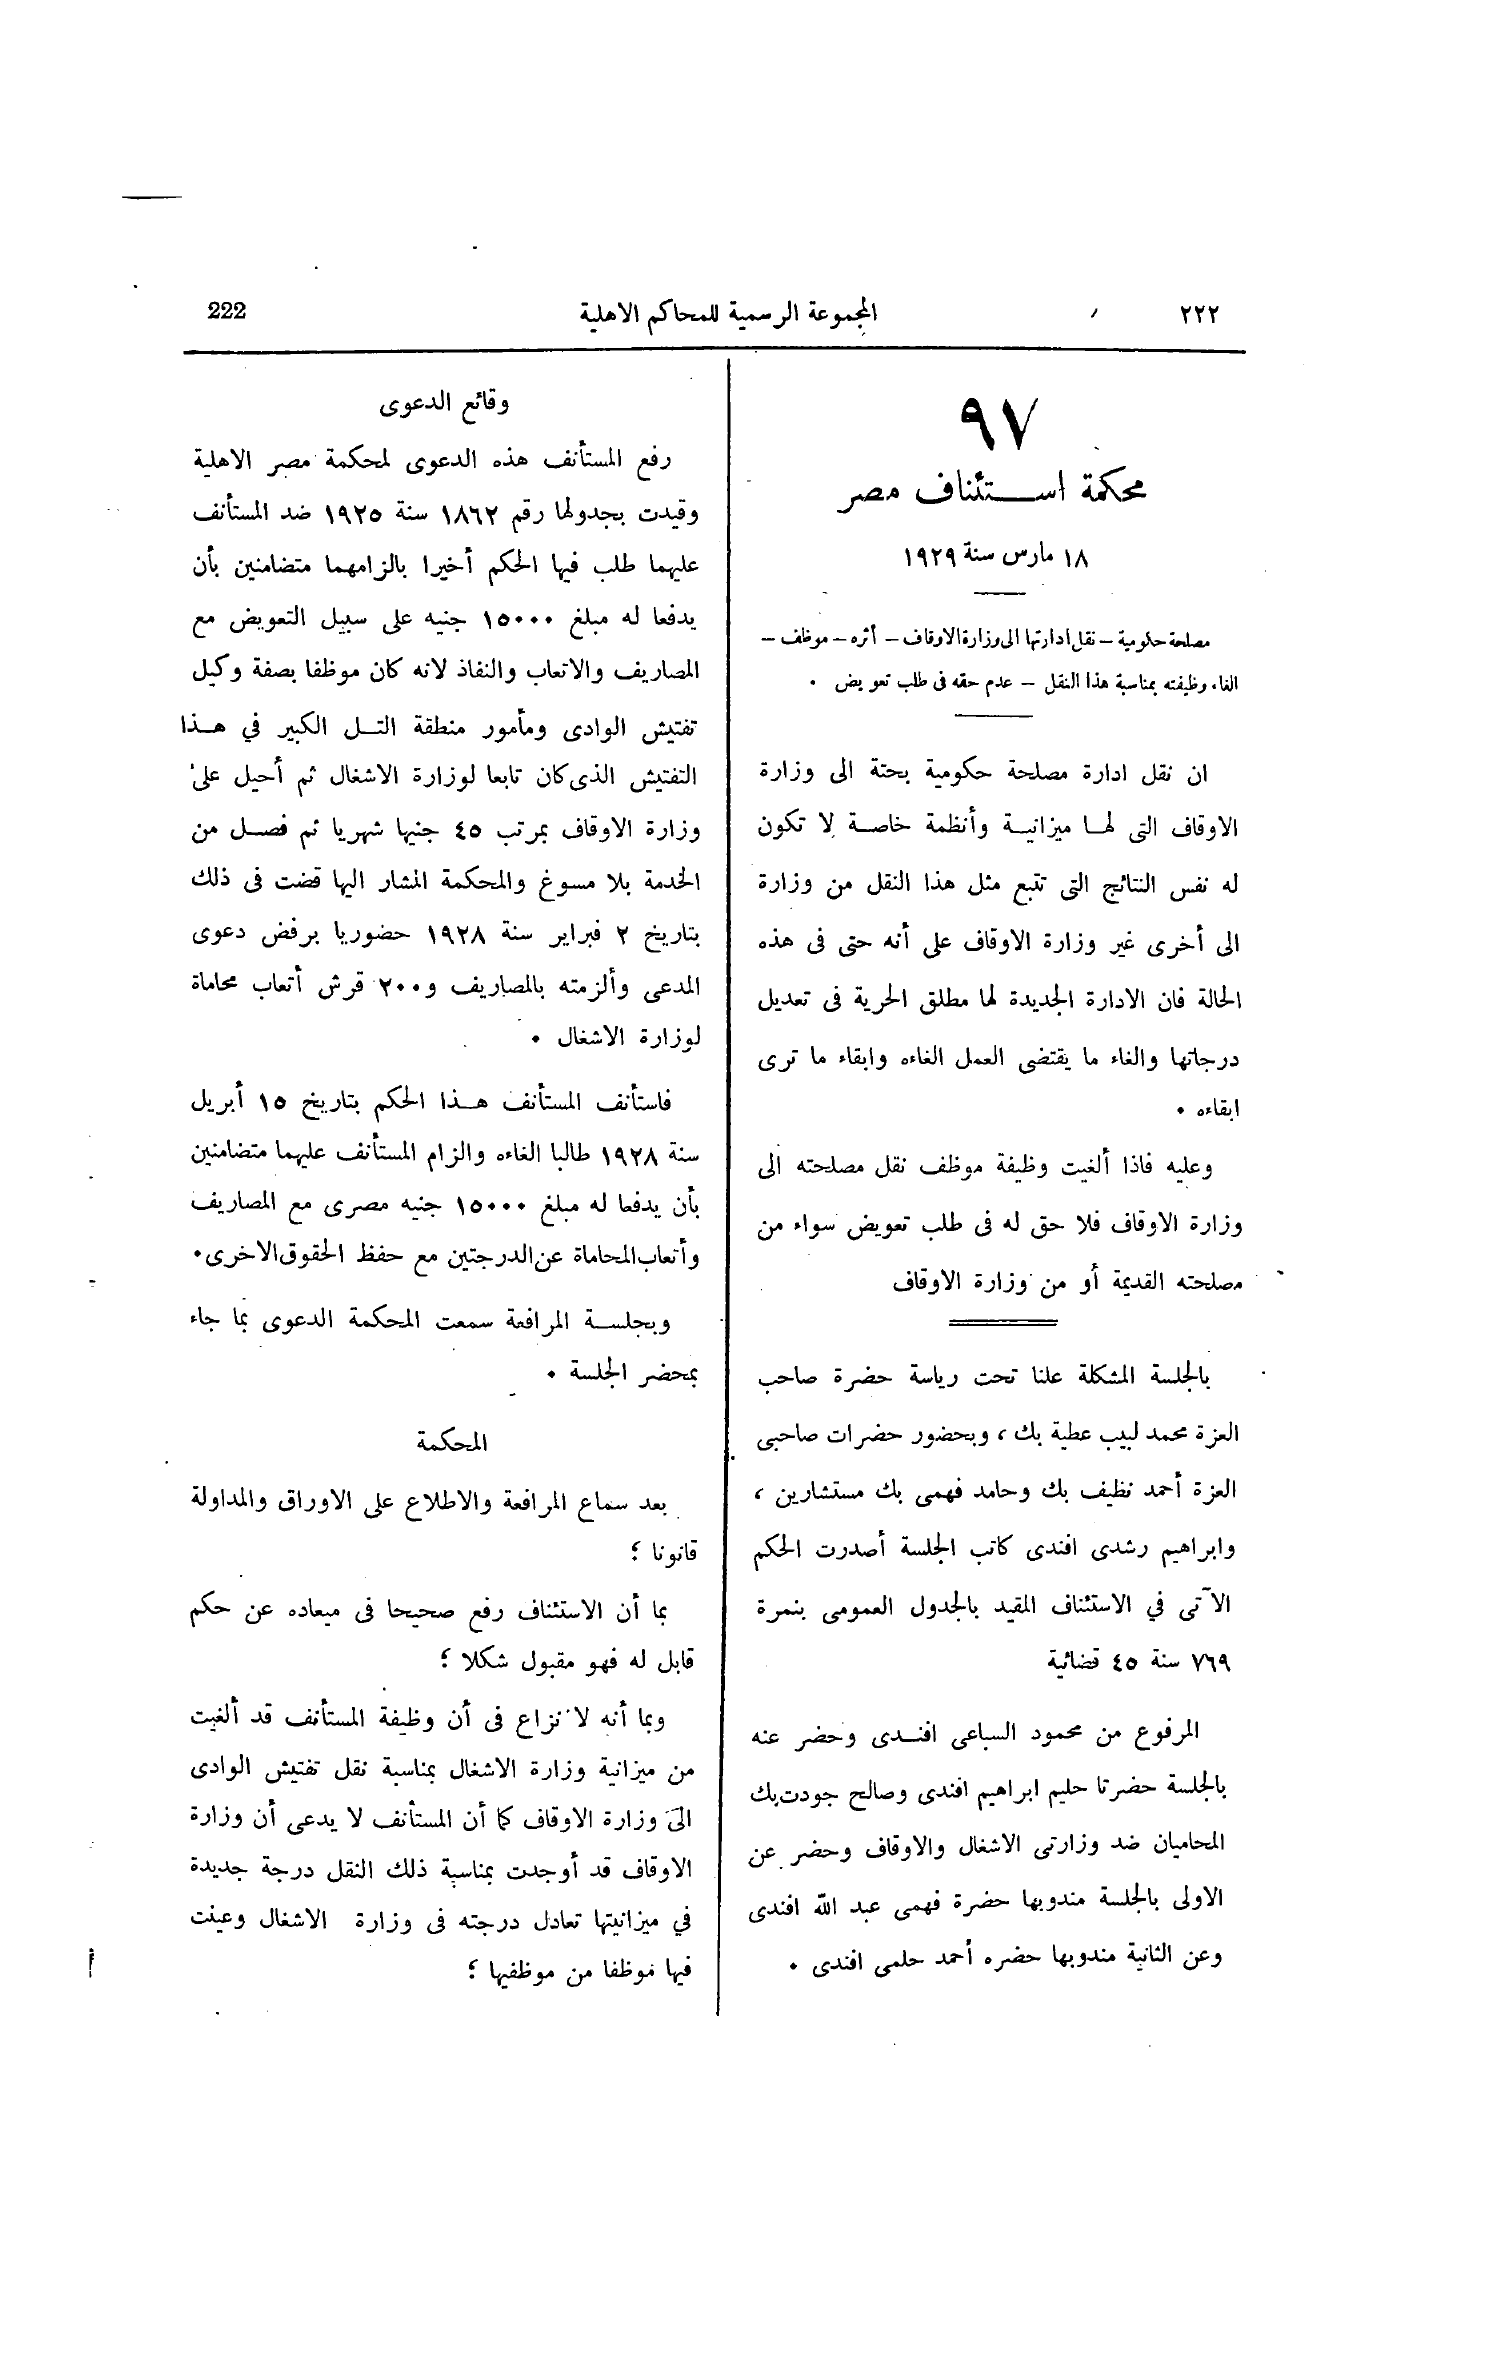 ٢٢٢
المجموعة الرسمية للمحاكم الاهلية
222
٩٧
محكمة استئناف مصر
١٨ مارس سنة ١٩٢٩
مصلحة حكومية – نقل ادارتها الى وزارة الاوقاف – أثره – موظف –
الغاء وظيفته بمناسبة هذا النقل – عدم حقه فى طلب تعويض .
ان نقل ادارة مصلحة حكومية بحتة الى وزارة
الاوقاف التى لها ميزانية وأنظمة خاصة لا تكون
له نفس النتائج التى تتبع مثل هذا النقل من وزارة
الى أخرى غير وزارة الاوقاف على أنه حتى فى هذه
الحالة فان الادارة الجديدة لها مطلق الحرية فى تعديل
درجاتها والغاء ما يقتضى العمل الغاءه وابقاء ما ترى
ابقاءه .
وعليه فاذا ألغيت وظيفة موظف نقل مصلحته الى
وزارة الاوقاف فلا حق له فى طلب تعويض سواء من
مصلحته القديمة أو من وزارة الاوقاف
بالجلسة المشكلة علنا تحت رياسة حضرة صاحب
العزة محمد لبيب عطية بك ، وبحضور حضرات صاحبى
العزة أحمد نظيف بك وحامد فهمى بك مستشارين ،
وابراهيم رشدى افندى كاتب الجلسة أصدرت الحكم
الآتى في الاستئناف المقيد بالجدول العمومى بنمرة
٧٦٩ سنة ٤٥ قضائية
المرفوع من محمود السباعى افندى وحضر عنه
بالجلسة حضرتا حليم ابراهيم افندى وصالح جودت بك
المحاميان ضد وزارتى الاشغال والاوقاف وحضر عن
الاولى بالجلسة مندوبها حضرة فهمى عبد الله افندى
وعن الثانية مندوبها حضره أحمد حلمى افندى .
وقائع الدعوى
رفع المستأنف هذه الدعوى لمحكمة مصر الاهلية
وقيدت بجدولها رقم ١٨٦٢ سنة ١٩٢٥ ضد المستأنف
عليهما طلب فيها الحكم أخيرا بالزامهما متضامنين بأن
يدفعا له مبلغ ١٥٠٠٠ جنيه على سبيل التعويض مع
المصاريف والاتعاب والنفاذ لانه كان موظفا بصفة وكيل
تفتيش الوادى ومأمور منطقة التل الكبير في هذا
التفتيش الذى كان تابعا لوزارة الاشغال ثم أحيل على
وزارة الاوقاف بمرتب ٤٥ جنيها شهريا ثم فصل من
الخدمة بلا مسوغ والمحكمة المشار اليها قضت فى ذلك
بتاريخ ٢ فبراير سنة ١٩٢٨ حضوريا برفض دعوى
المدعى وألزمته بالمصاريف و٢٠٠ قرش أتعاب محاماة
لوزارة الاشغال .
فاستأنف المستأنف هذا الحكم بتاريخ ١٥ أبريل
سنة ١٩٢٨ طالبا الغاءه والزام المستأنف عليهما متضامنين
بأن يدفعا له مبلغ ١٥٠٠٠ جنيه مصرى مع المصاريف
وأتعاب المحاماة عن الدرجتين مع حفظ الحقوق الاخرى .
وبجلسة المرافعة سمعت المحكمة الدعوى بما جاء
بمحضر الجلسة .
المحكمة
بعد سماع المرافعة والاطلاع على الاوراق والمداولة
قانونا ؛
بما أن الاستئناف رفع صحيحا فى ميعاده عن حكم
قابل له فهو مقبول شكلا ؛
وبما أنه لا نزاع فى أن وظيفة المستأنف قد ألغيت
من ميزانية وزارة الاشغال بمناسبة نقل تفتيش الوادى
الى وزارة الاوقاف كما أن المستأنف لا يدعى أن وزارة
الاوقاف قد أوجدت بمناسبة ذلك النقل درجة جديدة
في ميزانيتها تعادل درجته فى وزارة الاشغال وعينت
فيها موظفا من موظفيها ؛